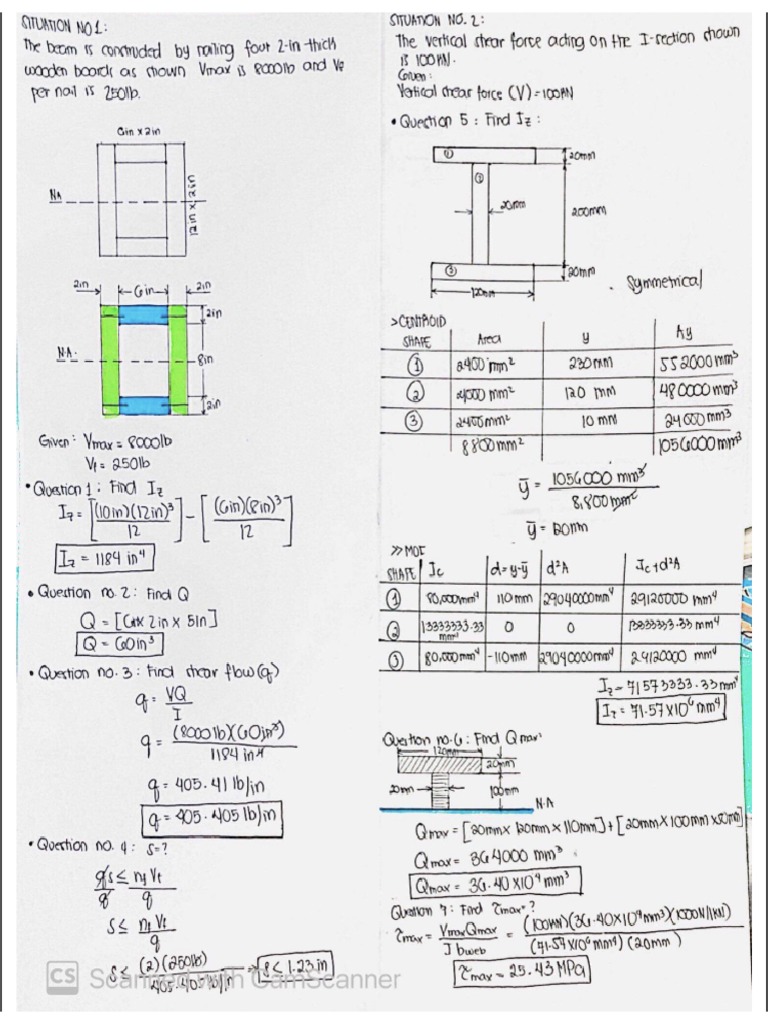 SITUATION NO 1:
The beam is constructed by nailing four 2-in-thick
wooden boards as shown Vmax is 8000lb and Vf
per nail is 250lb.
6in x 2in
NA
12in x 2in
2in
6in
2in
2in
N.A.
8in
2in
Given: Vmax = 8000lb
Vf = 250lb
• Question 1: Find Iz
Iz = [(10in)(12in)³/12] - [(6in)(8in)³/12]
Iz = 1184 in⁴
• Question no. 2: Find Q
Q = [6in x 2in x 5in]
Q = 60in³
• Question no. 3: Find shear flow (q)
q = VQ/I
q = (8000lb)(60in³)/1184in⁴
q = 405.41 lb/in
q = 405.405 lb/in
• Question no. 4: S=?
qs/q ≤ nf Vf/q
S ≤ nf Vf/q
S ≤ (2)(250lb)/405.405lb/in
S ≤ 1.23 in
SITUATION NO. 2:
The vertical shear force acting on the I-section shown
is 100kN.
Given:
Vertical shear force (V) = 100kN
• Question 5: Find Iz:
①
20mm
②
20mm
200mm
③
20mm
120mm
Symmetrical
>CENTROID
SHAPE Area y Ay
① 2400 mm² 230mm 552000mm³
② 4000 mm² 120 mm 480000 mm³
③ 2400mm² 10 mm 24000mm³
8800mm² 1056000mm³
ȳ = 1056000 mm³/8,800mm²
ȳ = 120mm
>>MOI
SHAPE Ic d=y-ȳ d²A Ic+d²A
① 80,000mm⁴ 110mm 29040000mm⁴ 29120000 mm⁴
② 13333333.33 mm⁴ 0 0 13333333.33 mm⁴
③ 80,000mm⁴ -110mm 29040000mm⁴ 29120000 mm⁴
Iz = 71573333.33mm⁴
Iz = 71.57x10⁶ mm⁴
Question no.6: Find Qmax:
120mm
20mm
20mm
100mm
N.A
Qmax = [20mm x 120mm x 110mm] + [20mm x 100mm x 50mm]
Qmax = 364000 mm³
Qmax = 36.40 x10⁴ mm³
Question 7: Find τmax=?
τmax = VmaxQmax/I bweb = (100kN)(36.40x10⁴mm³)(1000N/1kN)/(71.57x10⁶mm⁴)(20mm)
τmax = 25.43 MPa
CS Scanned with CamScanner